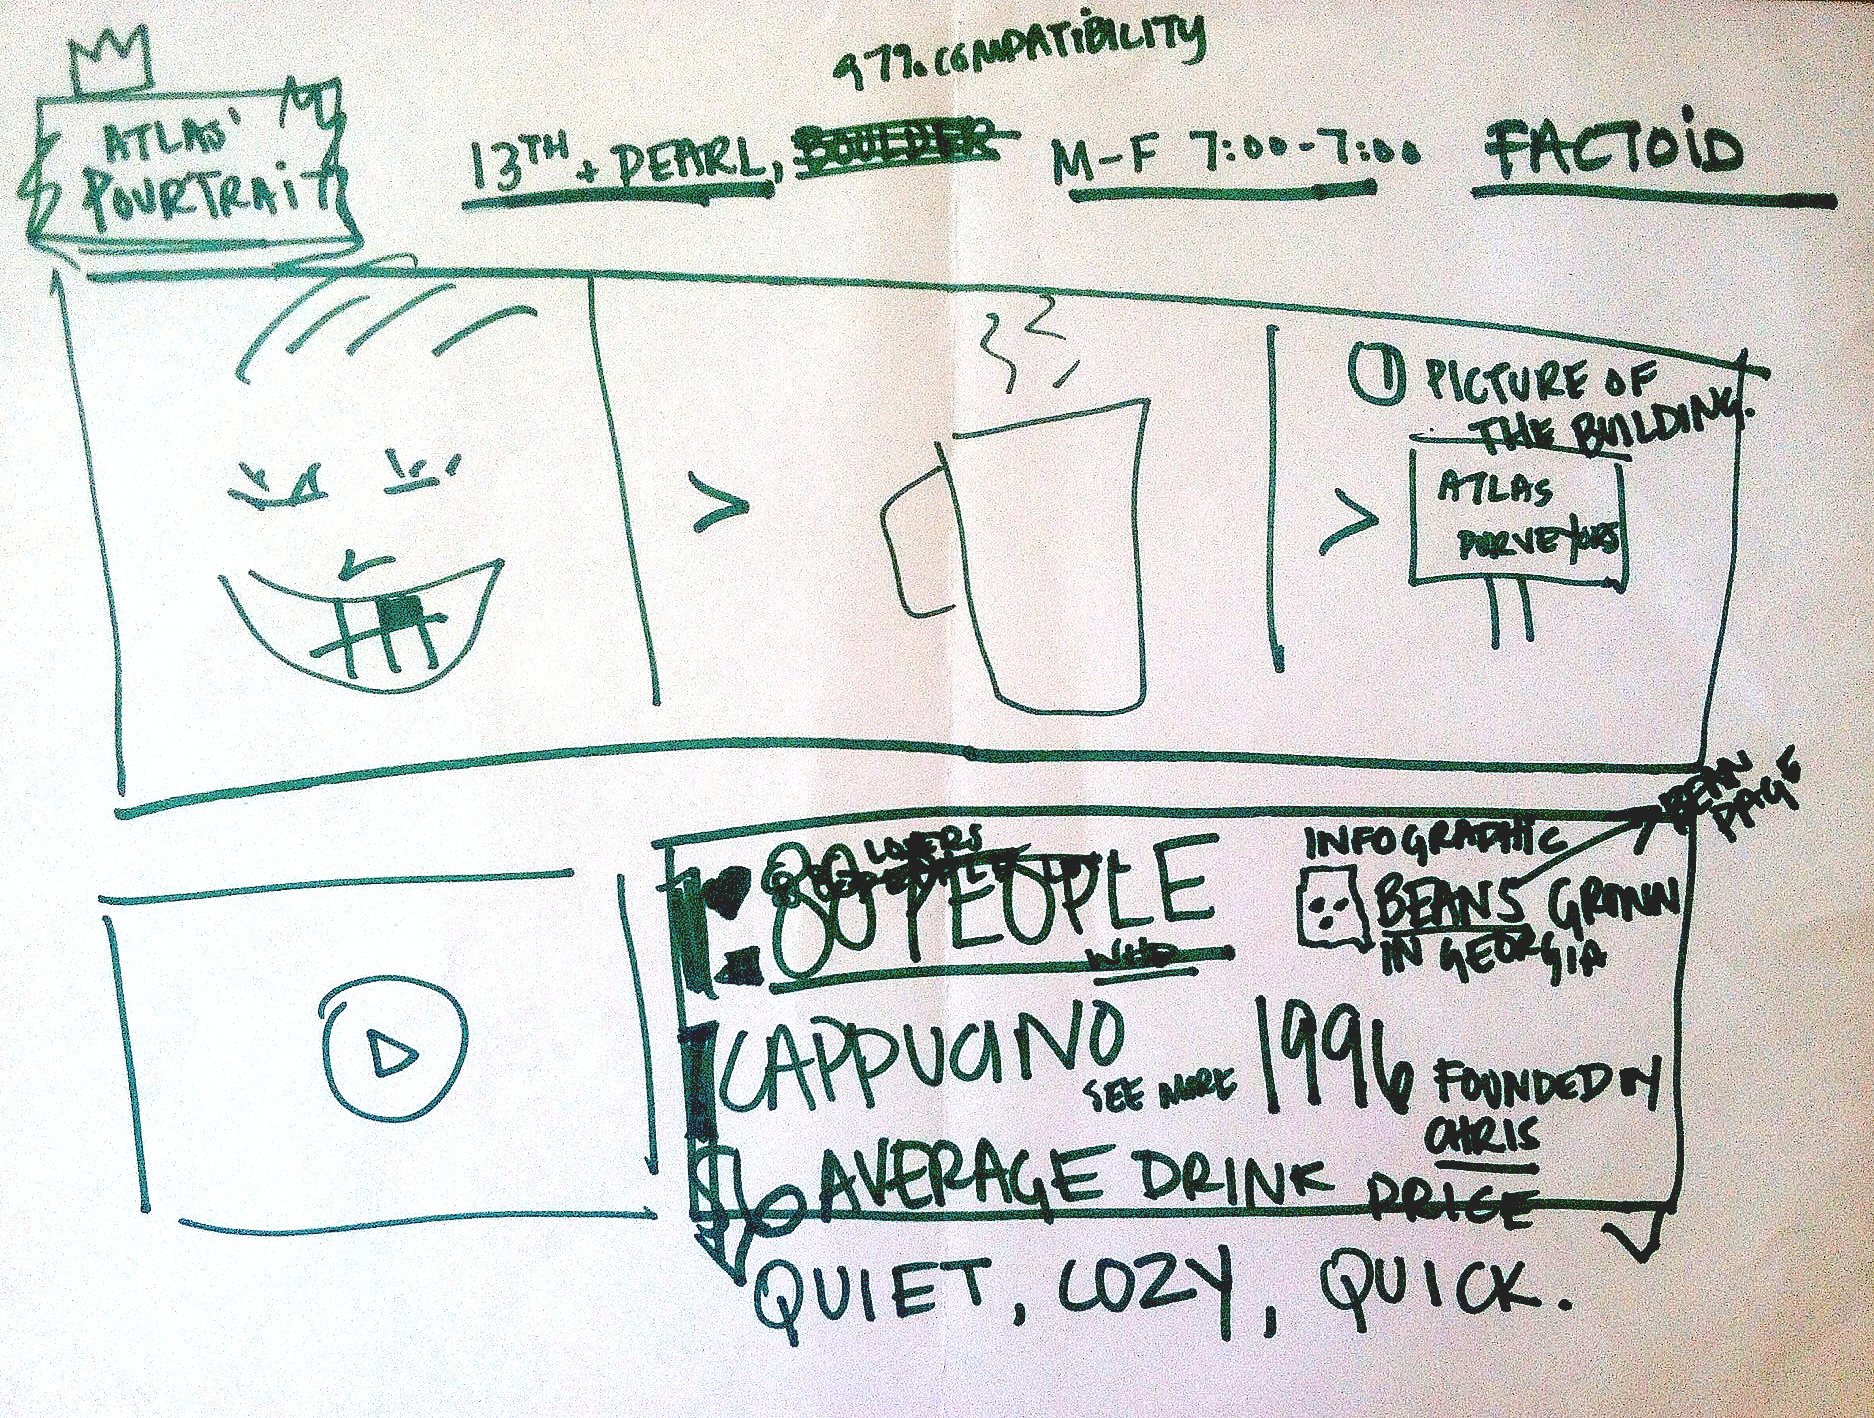 97% COMPATIBILITY
ATLAS'
POURTRAIT
13TH + PEARL, BOULDER
M-F 7:00-7:00
FACTOID
1 PICTURE OF
THE BUILDING.
>
>
ATLAS
PURVEYORS
BEAN
PAGE
LOVERS
80 PEOPLE
WHO
INFOGRAPHIC
BEANS GROWN
IN GEORGIA
CAPPUCINO
SEE MORE
1996 FOUNDED BY
CHRIS
$6 AVERAGE DRINK PRICE
QUIET, COZY, QUICK.